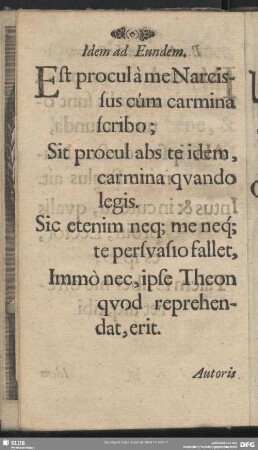 Idem ad Eundem.
Est procul à me Narcis-
sus cúm carmina
scribo;
Sit procul abs te idem,
carmina qvando
legis.
Sic etenim neq; me neq;
te persvasio fallet,
Immò nec, ipse Theon
qvod reprehen-
dat, erit.
Autoris
SLUB
DFG